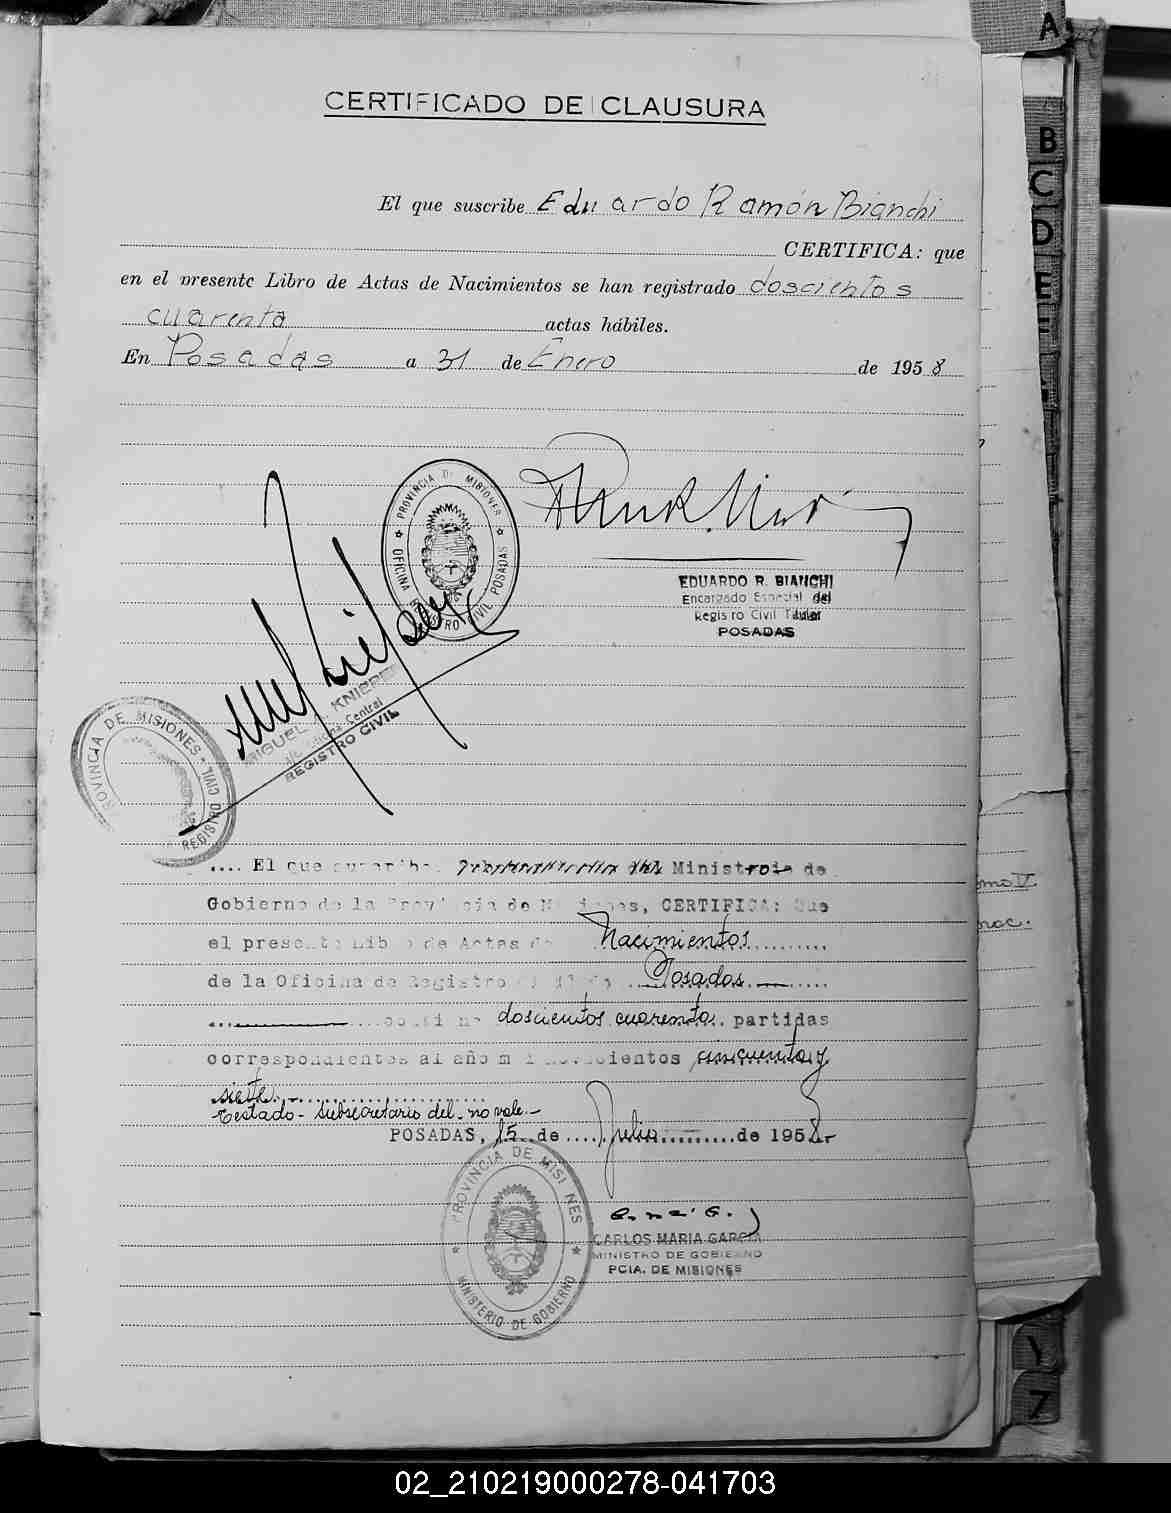 CERTIFICADO DE CLAUSURA
El que suscribe Eduardo Ramón Bianchi
CERTIFICA: que
en el presente Libro de Actas de Nacimientos se han registrado doscientos
cuarenta actas hábiles.
En Posadas a 31 de Enero de 1958
PROVINCIA DE MISIONES
OFICINA REGISTRO CIVIL POSADAS
EDUARDO R. BIANCHI
Encargado Especial del
Registro Civil Titular
POSADAS
MIGUEL KNIEPER
Oficina Central
REGISTRO CIVIL
PROVINCIA DE MISIONES - REGISTRO CIVIL
.... El que suscribe Ministro de
Gobierno de la Provincia de Misiones, CERTIFICA: Que
el presente Libro de Actas de Nacimientos
de la Oficina de Registro Civil de Posadas
consi no doscientos cuarenta partidas
correspondientes al año mil novecientos cincuenta y
siete.
Testado - Subsecretario del - no vale.-
POSADAS, 15 de Julio de 1958.-
PROVINCIA DE MISIONES
MINISTERIO DE GOBIERNO
CARLOS MARIA GARCIA
MINISTRO DE GOBIERNO
PCIA. DE MISIONES
A
B
C
D
E
7
02_210219000278-041703